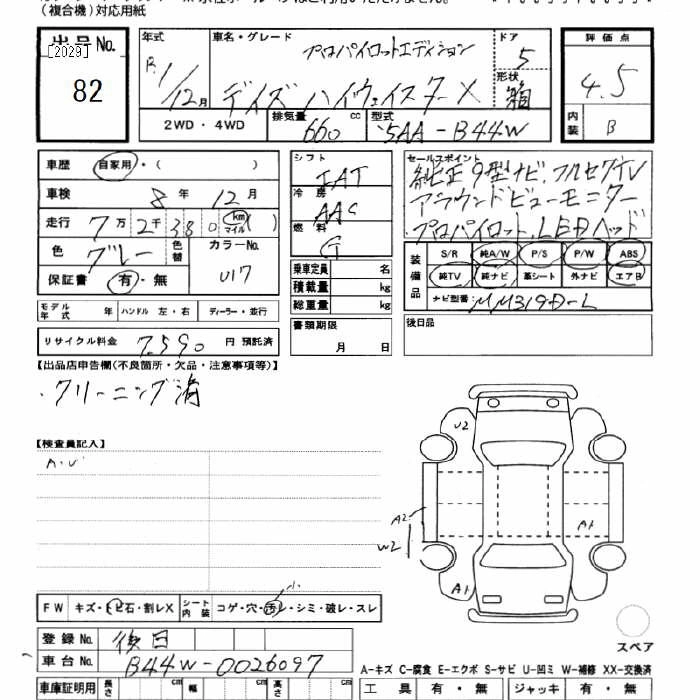 (複合機)対応用紙
出品No.
[2029]
82
年式
R. 1/12月
車名・グレード
プロパイロットエディション
デイズ ハイウェイスターX
ドア
5
形状
箱
評価点
4.5
内装
B
2WD・4WD
排気量
660 cc
型式
5AA-B44W
車歴 自家用・( )
車検 8年 12月
走行 7万2千380 km マイル ( )
色 グレー
色替
カラーNo.
U17
保証書 有・無
シフト
IAT
冷房
AAC
燃料
G
乗車定員 名
積載量 kg
総重量 kg
書類期限
月 日
セールスポイント
純正9型ナビ.フルセグTV
アラウンドビューモニター
プロパイロット.LEDヘッド
装備品
S/R 純A/W P/S P/W ABS
純TV 純ナビ 革シート 外ナビ エアB
ナビ型番: MM319D-L
後日品
モデル年式 年 ハンドル 左・右 ディーラー・並行
リサイクル料金 7,590 円 預託済
【出品店申告欄(不良箇所・欠品・注意事項等)】
・クリーニング済
【検査員記入】
U2
A2
W2
A1
A1
FW キズ・ヒビ石・割レX シート内装 コゲ・穴・汚レ・シミ・破レ・スレ
小
登録No. 後日
車台No. B44W-0026097
スペア
A-キズ C-腐食 E-エクボ S-サビ U-凹ミ W-補修 XX-交換済
車庫証明用 長さ cm 幅 cm 高さ cm
工具 有・無 ジャッキ 有・無